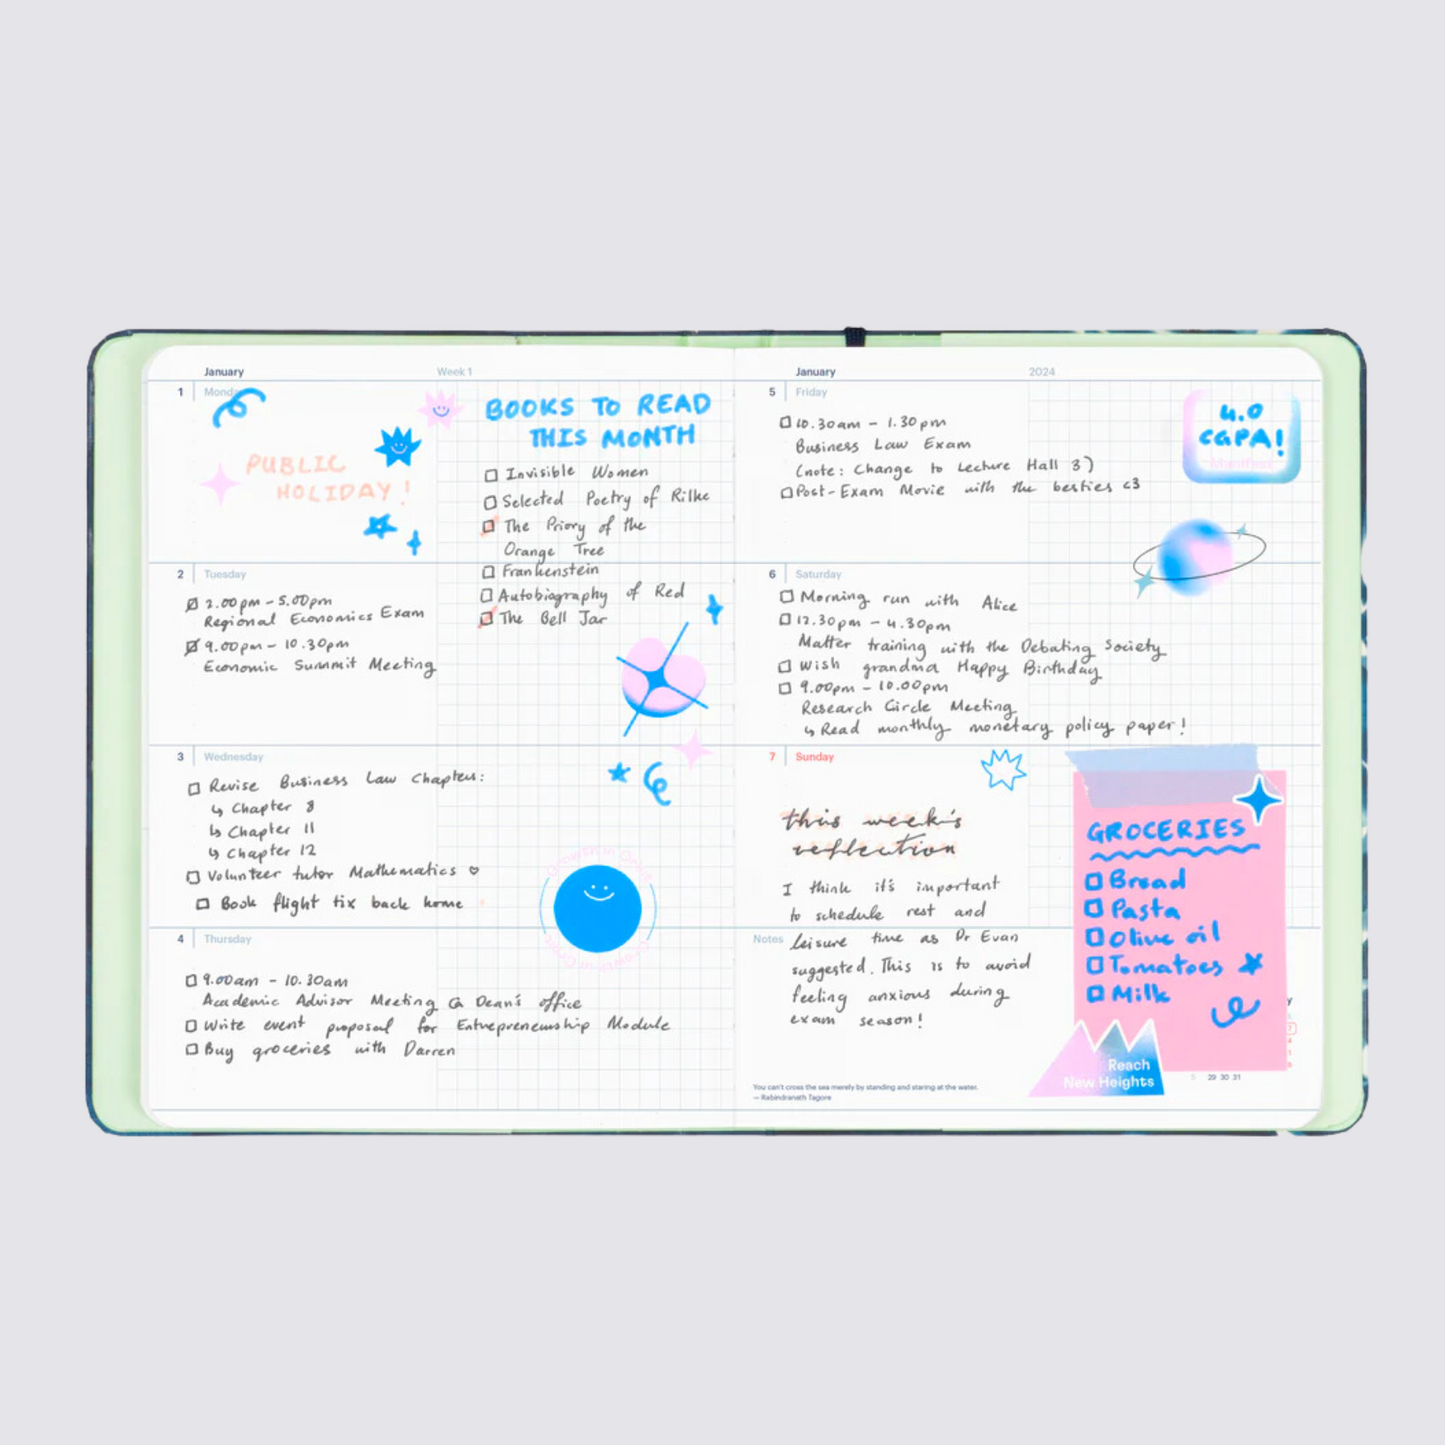 January
Week 1
1
Monday
PUBLIC
HOLIDAY!
BOOKS TO READ
THIS MONTH
Invisible Women
Selected Poetry of Rilke
The Priory of the
Orange Tree
Frankenstein
Autobiography of Red
The Bell Jar
2
Tuesday
2.00pm - 5.00pm
Regional Economics Exam
9.00pm - 10.30pm
Economic Summit Meeting
3
Wednesday
Revise Business Law Chapters:
↳ Chapter 8
↳ Chapter 11
↳ Chapter 12
Volunteer tutor Mathematics ♡
Book flight tix back home
4
Thursday
9.00am - 10.30am
Academic Advisor Meeting @ Dean's office
Write event proposal for Entrepreneurship Module
Buy groceries with Darren
January
2024
5
Friday
10.30am - 1.30pm
Business Law Exam
(note: Change to Lecture Hall 3)
Post-Exam Movie with the besties <3
4.0
CGPA!
6
Saturday
Morning run with Alice
12.30pm - 4.30pm
Matter training with the Debating Society
Wish grandma Happy Birthday
9.00pm - 10.00pm
Research Circle Meeting
↳ Read monthly monetary policy paper!
7
Sunday
this week's
reflection
I think it's important
to schedule rest and
Notes
leisure time as Dr Evan
suggested. This is to avoid
feeling anxious during
exam season!
GROCERIES
Bread
Pasta
Olive oil
Tomatoes
Milk
Reach
New Heights
29 30 31
You can't cross the sea merely by standing and staring at the water.
— Rabindranath Tagore